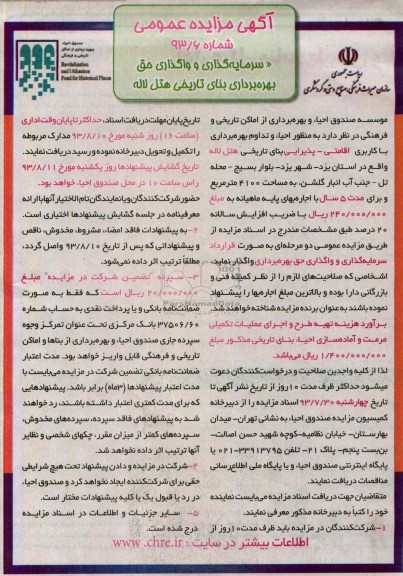 صندوق احیاء و
بهره برداری از اماکن
تاریخی و فرهنگی
Revitalization
and Utilization
Fund for Historical Places
آگهی مزایده عمومی
شماره ۹۳/۶
« سرمایه‌گذاری و واگذاری حق
بهره‌برداری بنای تاریخی هتل لاله
ریاست جمهوری
سازمان میراث فرهنگی، صنایع دستی و گردشگری
موسسه صندوق احیاء و بهره‌برداری از اماکن تاریخی و
فرهنگی در نظر دارد به منظور احیاء و تداوم بهره‌برداری
با کاربری اقامتی - پذیرایی بنای تاریخی هتل لاله
واقع در استان یزد- شهر یزد- بلوار بسیج - محله
تل - جنب آب انبار گلشن، به مساحت ۴۱۰۰ مترمربع
و برای مدت ۵ سال با اجاره‌بهای پایه ماهیانه به مبلغ
۲۴۰/۰۰۰/۰۰۰ ریال با ضریب افزایش سالانه
۲۰ درصد طبق مشخصات مندرج در اسناد مزایده از
طریق مزایده عمومی دو مرحله‌ای به صورت قرارداد
سرمایه‌گذاری و واگذاری حق بهره‌برداری واگذار نماید.
اشخاصی که صلاحیت‌های لازم را از نظر کمیته فنی و
بازرگانی دارا بوده و بالاترین مبلغ اجاره‌بها را پیشنهاد
نموده باشند به عنوان برنده مزایده شناخته خواهند شد.
برآورد هزینه تهیه طرح و اجرای عملیات تکمیلی
مرمت و آماده‌سازی احیاء بنای تاریخی مذکور مبلغ
۱/۴۰۰/۰۰۰/۰۰۰ ریال می‌باشد.
لذا از کلیه واجدین صلاحیت و درخواست‌کنندگان دعوت
میشود حداکثر ظرف مدت ۱۰ روز از تاریخ نشر آگهی تا
تاریخ چهارشنبه ۹۳/۷/۳۰ اسناد مزایده را از دبیرخانه
کمیسیون مزایده صندوق احیاء به نشانی تهران- میدان
بهارستان- خیابان نظامیه-کوچه شهید حسن اصالت-
بن‌بست پنجم- پلاک ۲۱- تلفن ۳۳۹۱۳۷۹۵-۰۲۱ یا
پایگاه اینترنتی صندوق احیاء و یا پایگاه ملی اطلاع‌رسانی
مناقصات دریافت نمایند.
متقاضیان جهت دریافت اسناد مزایده می‌بایست نماینده
خود را کتباً به دبیرخانه مذکور معرفی نمایند.
۱-شرکت‌کنندگان در مزایده باید ظرف مدت ۱۰ روز از
تاریخ پایان مهلت دریافت اسناد، حداکثر تا پایان وقت اداری
(ساعت ۱۶) روز شنبه مورخ ۹۳/۸/۱۰ مدارک مربوطه
را تکمیل و تحویل دبیرخانه نموده و رسید دریافت نمایند.
تاریخ گشایش پیشنهادها روز یکشنبه مورخ ۹۳/۸/۱۱
راس ساعت ۱۰ در محل صندوق احیاء خواهد بود.
حضور شرکت‌کنندگان و یا نمایندگان تام‌الاختیار آنها با ارائه
معرفینامه در جلسه گشایش پیشنهادها اختیاری است.
۲- به پیشنهادات فاقد امضاء، مشروط، مخدوش، ناقص
و پیشنهاداتی که پس از تاریخ ۹۳/۸/۱۰ واصل گردد،
مطلقاً ترتیب اثر داده نمی‌شود.
۳- سپرده "تضمین شرکت در مزایده" مبلغ
۲۰/۰۰۰/۰۰۰ ریال است که فقط به صورت
ضمانت‌نامه بانکی و یا پرداخت نقدی به حساب شماره
۳۷۵۰۶/۶۰ بانک مرکزی تحت عنوان تمرکز وجوه
سپرده جاری صندوق احیاء و بهره‌برداری از بناها و اماکن
تاریخی و فرهنگی قابل واریز خواهد بود. مدت اعتبار
ضمانت‌نامه بانکی تضمین شرکت در مزایده می‌بایست با
مدت اعتبار پیشنهادها (۳ماه) برابر باشد. پیشنهادهایی
که برای مدت کمتری اعتبار داشته باشند، رد خواهند
شد به پیشنهادهای فاقد سپرده، سپرده‌های مخدوش،
سپرده‌های کمتر از میزان مقرر، چکهای شخصی و نظایر
آنها ترتیب اثر داده نخواهد شد.
۴-شرکت در مزایده و دادن پیشنهاد تحت هیچ شرایطی
حقی برای شرکت‌کننده ایجاد نخواهد کرد و صندوق احیاء،
در رد یا قبول یک یا کلیه پیشنهادات مختار است.
۵- سایر جزئیات و اطلاعات در اسناد مزایده
درج شده است.
اطلاعات بیشتر در سایت : www.chre.ir